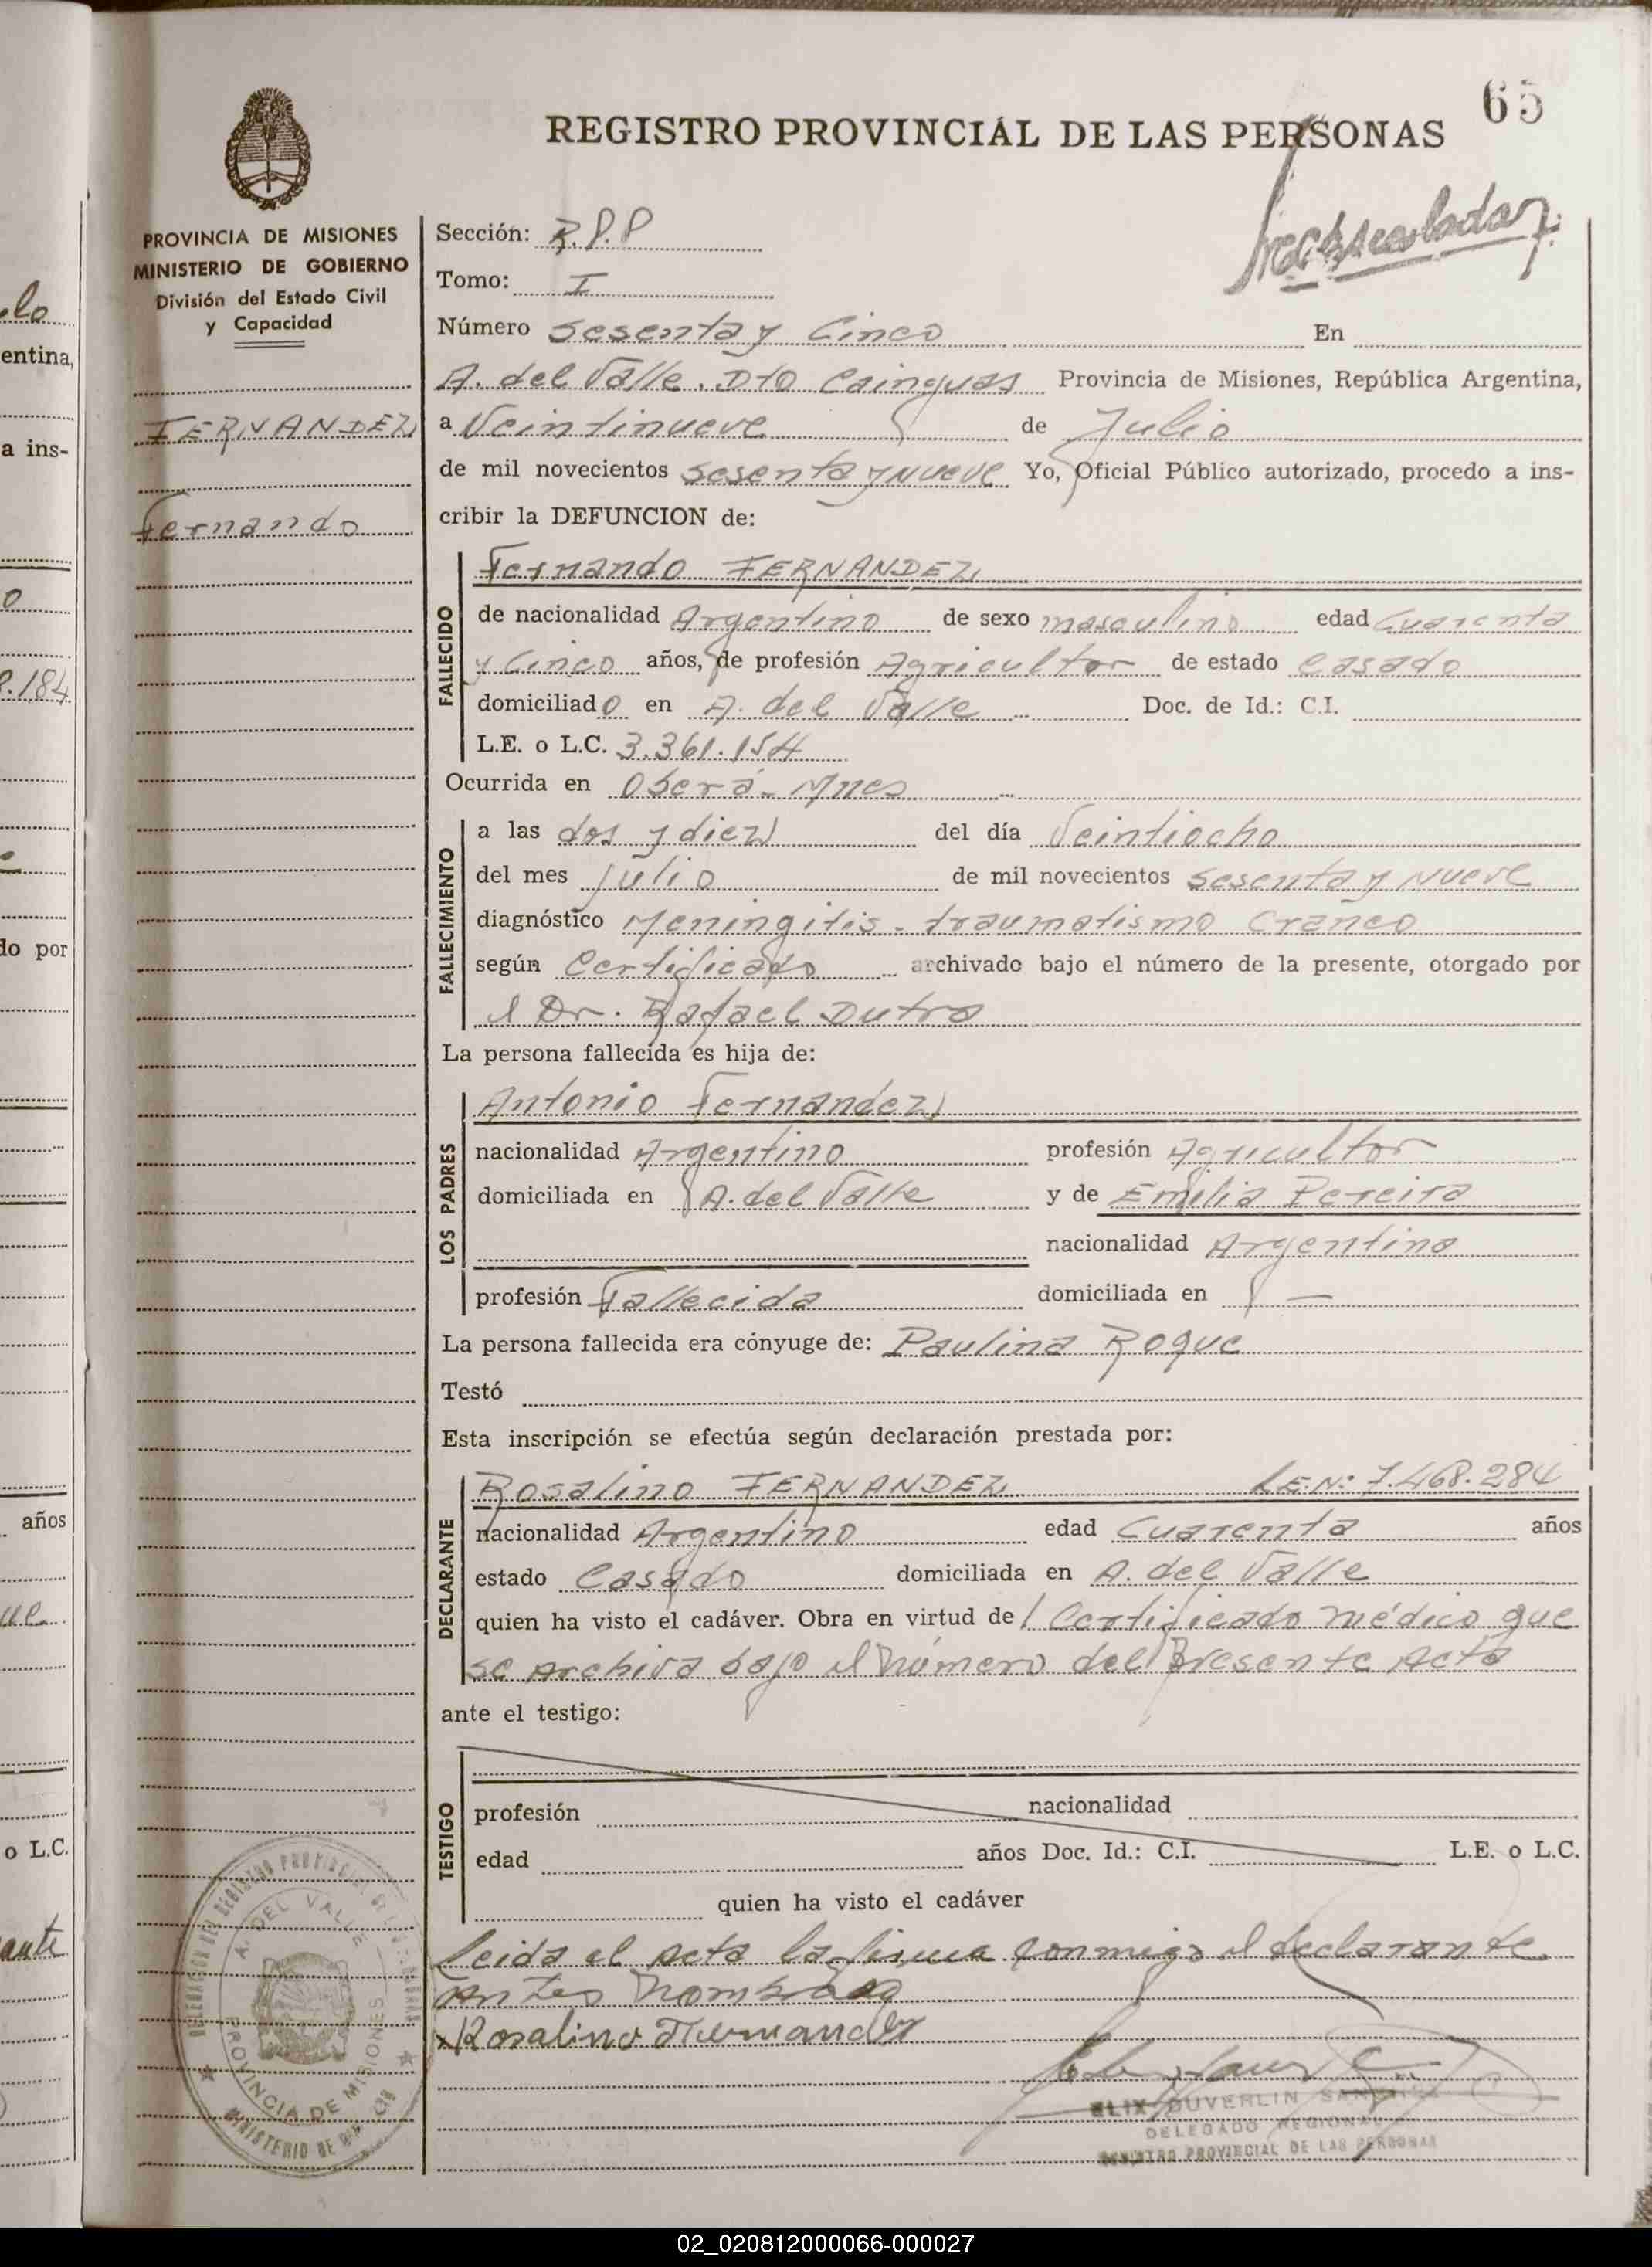 65
REGISTRO PROVINCIAL DE LAS PERSONAS
PROVINCIA DE MISIONES
MINISTERIO DE GOBIERNO
División del Estado Civil
y Capacidad
FERNANDEZ
Fernando
Sección: R.P.P
Tomo: I
Número Sesenta y Cinco En
A. del Valle. Dto Cainguas Provincia de Misiones, República Argentina,
a Veintinueve de Julio
de mil novecientos Sesenta y Nueve Yo, Oficial Público autorizado, procedo a ins-
cribir la DEFUNCION de:
FALLECIDO
Fernando FERNANDEZ
de nacionalidad Argentino de sexo masculino edad Cuarenta
y Cinco años, de profesión Agricultor de estado Casado
domiciliado en A. del Valle Doc. de Id.: C.I.
L.E. o L.C. 3.361.154
Ocurrida en Oberá - Mnes
FALLECIMIENTO
a las dos y diez del día Veintiocho
del mes Julio de mil novecientos Sesenta y Nueve
diagnóstico Meningitis - traumatismo Craneo
según Certificado archivado bajo el número de la presente, otorgado por
el Dr. Rafael Dutra
La persona fallecida es hija de:
LOS PADRES
Antonio Fernandez
nacionalidad Argentino profesión Agricultor
domiciliada en A. del Valle y de Emilia Pereira
nacionalidad Argentina
profesión Fallecida domiciliada en —
La persona fallecida era cónyuge de: Paulina Roque
Testó
Esta inscripción se efectúa según declaración prestada por:
DECLARANTE
Rosalino FERNANDEZ L.E.N: 7.468.284
nacionalidad Argentino edad Cuarenta años
estado Casado domiciliada en A. del Valle
quien ha visto el cadáver. Obra en virtud de / Certificado médico que
se Archiva bajo el número del Presente Acta
ante el testigo:
TESTIGO
profesión nacionalidad
edad años Doc. Id.: C.I. L.E. o L.C.
quien ha visto el cadáver
Leida el Acta la firma conmigo el declarante
antes nombrado
x Rosalino Fernandez
DUVERLIN
DELEGADO REGIONAL
REGISTRO PROVINCIAL DE LAS PERSONAS
DELEGACION DEL REGISTRO PROVINCIAL DE LAS PERSONAS
A. DEL VALLE
PROVINCIA DE MISIONES
MINISTERIO DE
elo
entina,
a ins-
o
8.184
do por
años
ue
o L.C.
ante
02_020812000066-000027